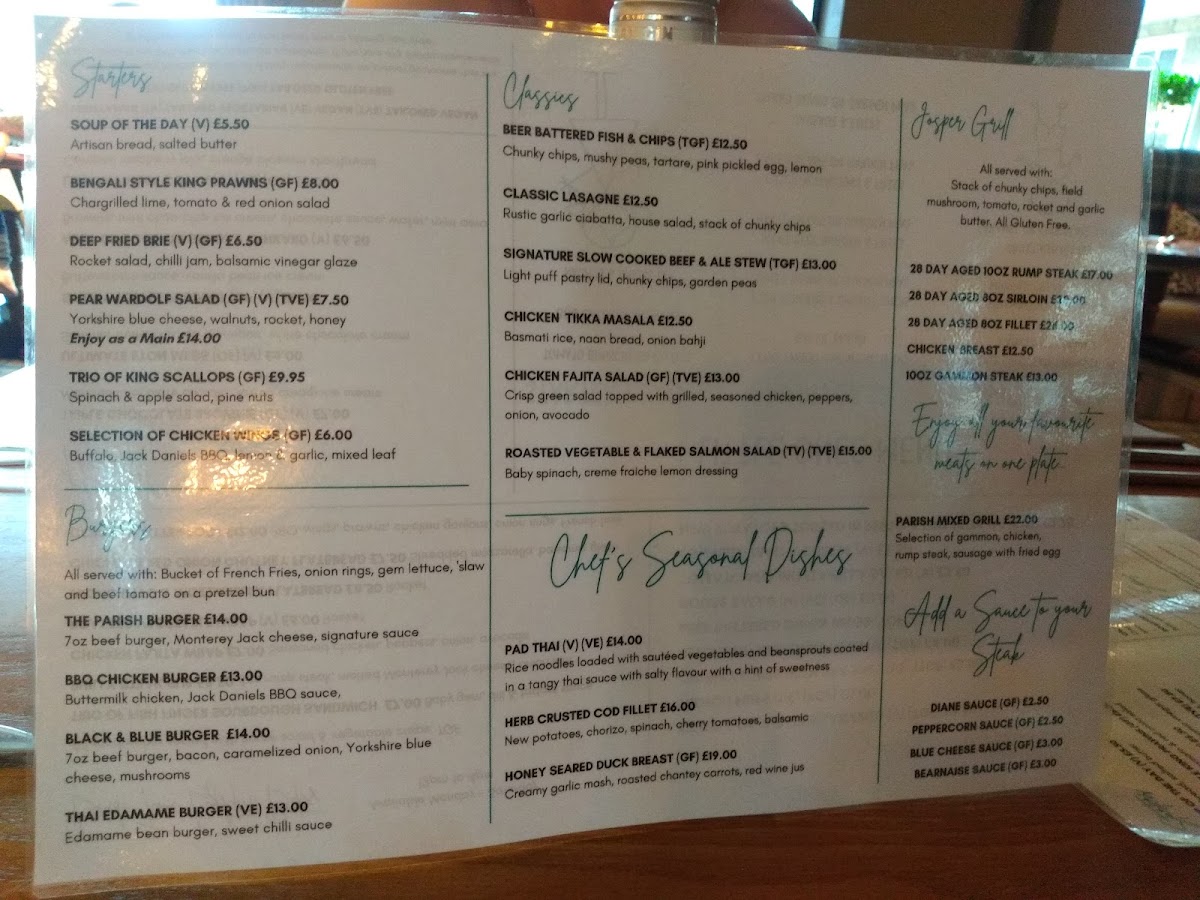 Starters
SOUP OF THE DAY (V) £5.50
Artisan bread, salted butter
BENGALI STYLE KING PRAWNS (GF) £8.00
Chargrilled lime, tomato & red onion salad
DEEP FRIED BRIE (V) (GF) £6.50
Rocket salad, chilli jam, balsamic vinegar glaze
PEAR WARDOLF SALAD (GF) (V) (TVE) £7.50
Yorkshire blue cheese, walnuts, rocket, honey
Enjoy as a Main £14.00
TRIO OF KING SCALLOPS (GF) £9.95
Spinach & apple salad, pine nuts
SELECTION OF CHICKEN WINGS (GF) £6.00
Buffalo, Jack Daniels BBQ, lemon & garlic, mixed leaf
Burgers
All served with: Bucket of French Fries, onion rings, gem lettuce, 'slaw
and beef tomato on a pretzel bun
THE PARISH BURGER £14.00
7oz beef burger, Monterey Jack cheese, signature sauce
BBQ CHICKEN BURGER £13.00
Buttermilk chicken, Jack Daniels BBQ sauce,
BLACK & BLUE BURGER £14.00
7oz beef burger, bacon, caramelized onion, Yorkshire blue
cheese, mushrooms
THAI EDAMAME BURGER (VE) £13.00
Edamame bean burger, sweet chilli sauce
Classics
BEER BATTERED FISH & CHIPS (TGF) £12.50
Chunky chips, mushy peas, tartare, pink pickled egg, lemon
CLASSIC LASAGNE £12.50
Rustic garlic ciabatta, house salad, stack of chunky chips
SIGNATURE SLOW COOKED BEEF & ALE STEW (TGF) £13.00
Light puff pastry lid, chunky chips, garden peas
CHICKEN TIKKA MASALA £12.50
Basmati rice, naan bread, onion bahji
CHICKEN FAJITA SALAD (GF) (TVE) £13.00
Crisp green salad topped with grilled, seasoned chicken, peppers,
onion, avocado
ROASTED VEGETABLE & FLAKED SALMON SALAD (TV) (TVE) £15.00
Baby spinach, creme fraiche lemon dressing
Chef's Seasonal Dishes
PAD THAI (V) (VE) £14.00
Rice noodles loaded with sautéed vegetables and beansprouts coated
in a tangy thai sauce with salty flavour with a hint of sweetness
HERB CRUSTED COD FILLET £16.00
New potatoes, chorizo, spinach, cherry tomatoes, balsamic
HONEY SEARED DUCK BREAST (GF) £19.00
Creamy garlic mash, roasted chantey carrots, red wine jus
Josper Grill
All served with:
Stack of chunky chips, field
mushroom, tomato, rocket and garlic
butter. All Gluten Free.
28 DAY AGED 10OZ RUMP STEAK £17.00
28 DAY AGED 8OZ SIRLOIN
28 DAY AGED 8OZ FILLET
CHICKEN BREAST £12.50
10OZ GAMMON STEAK £13.00
Enjoy all your favourite
meats on one plate
PARISH MIXED GRILL £22.00
Selection of gammon, chicken,
rump steak, sausage with fried egg
Add a Sauce to your
Steak
DIANE SAUCE (GF) £2.50
PEPPERCORN SAUCE (GF) £2.50
BLUE CHEESE SAUCE (GF) £3.00
BEARNAISE SAUCE (GF) £3.00